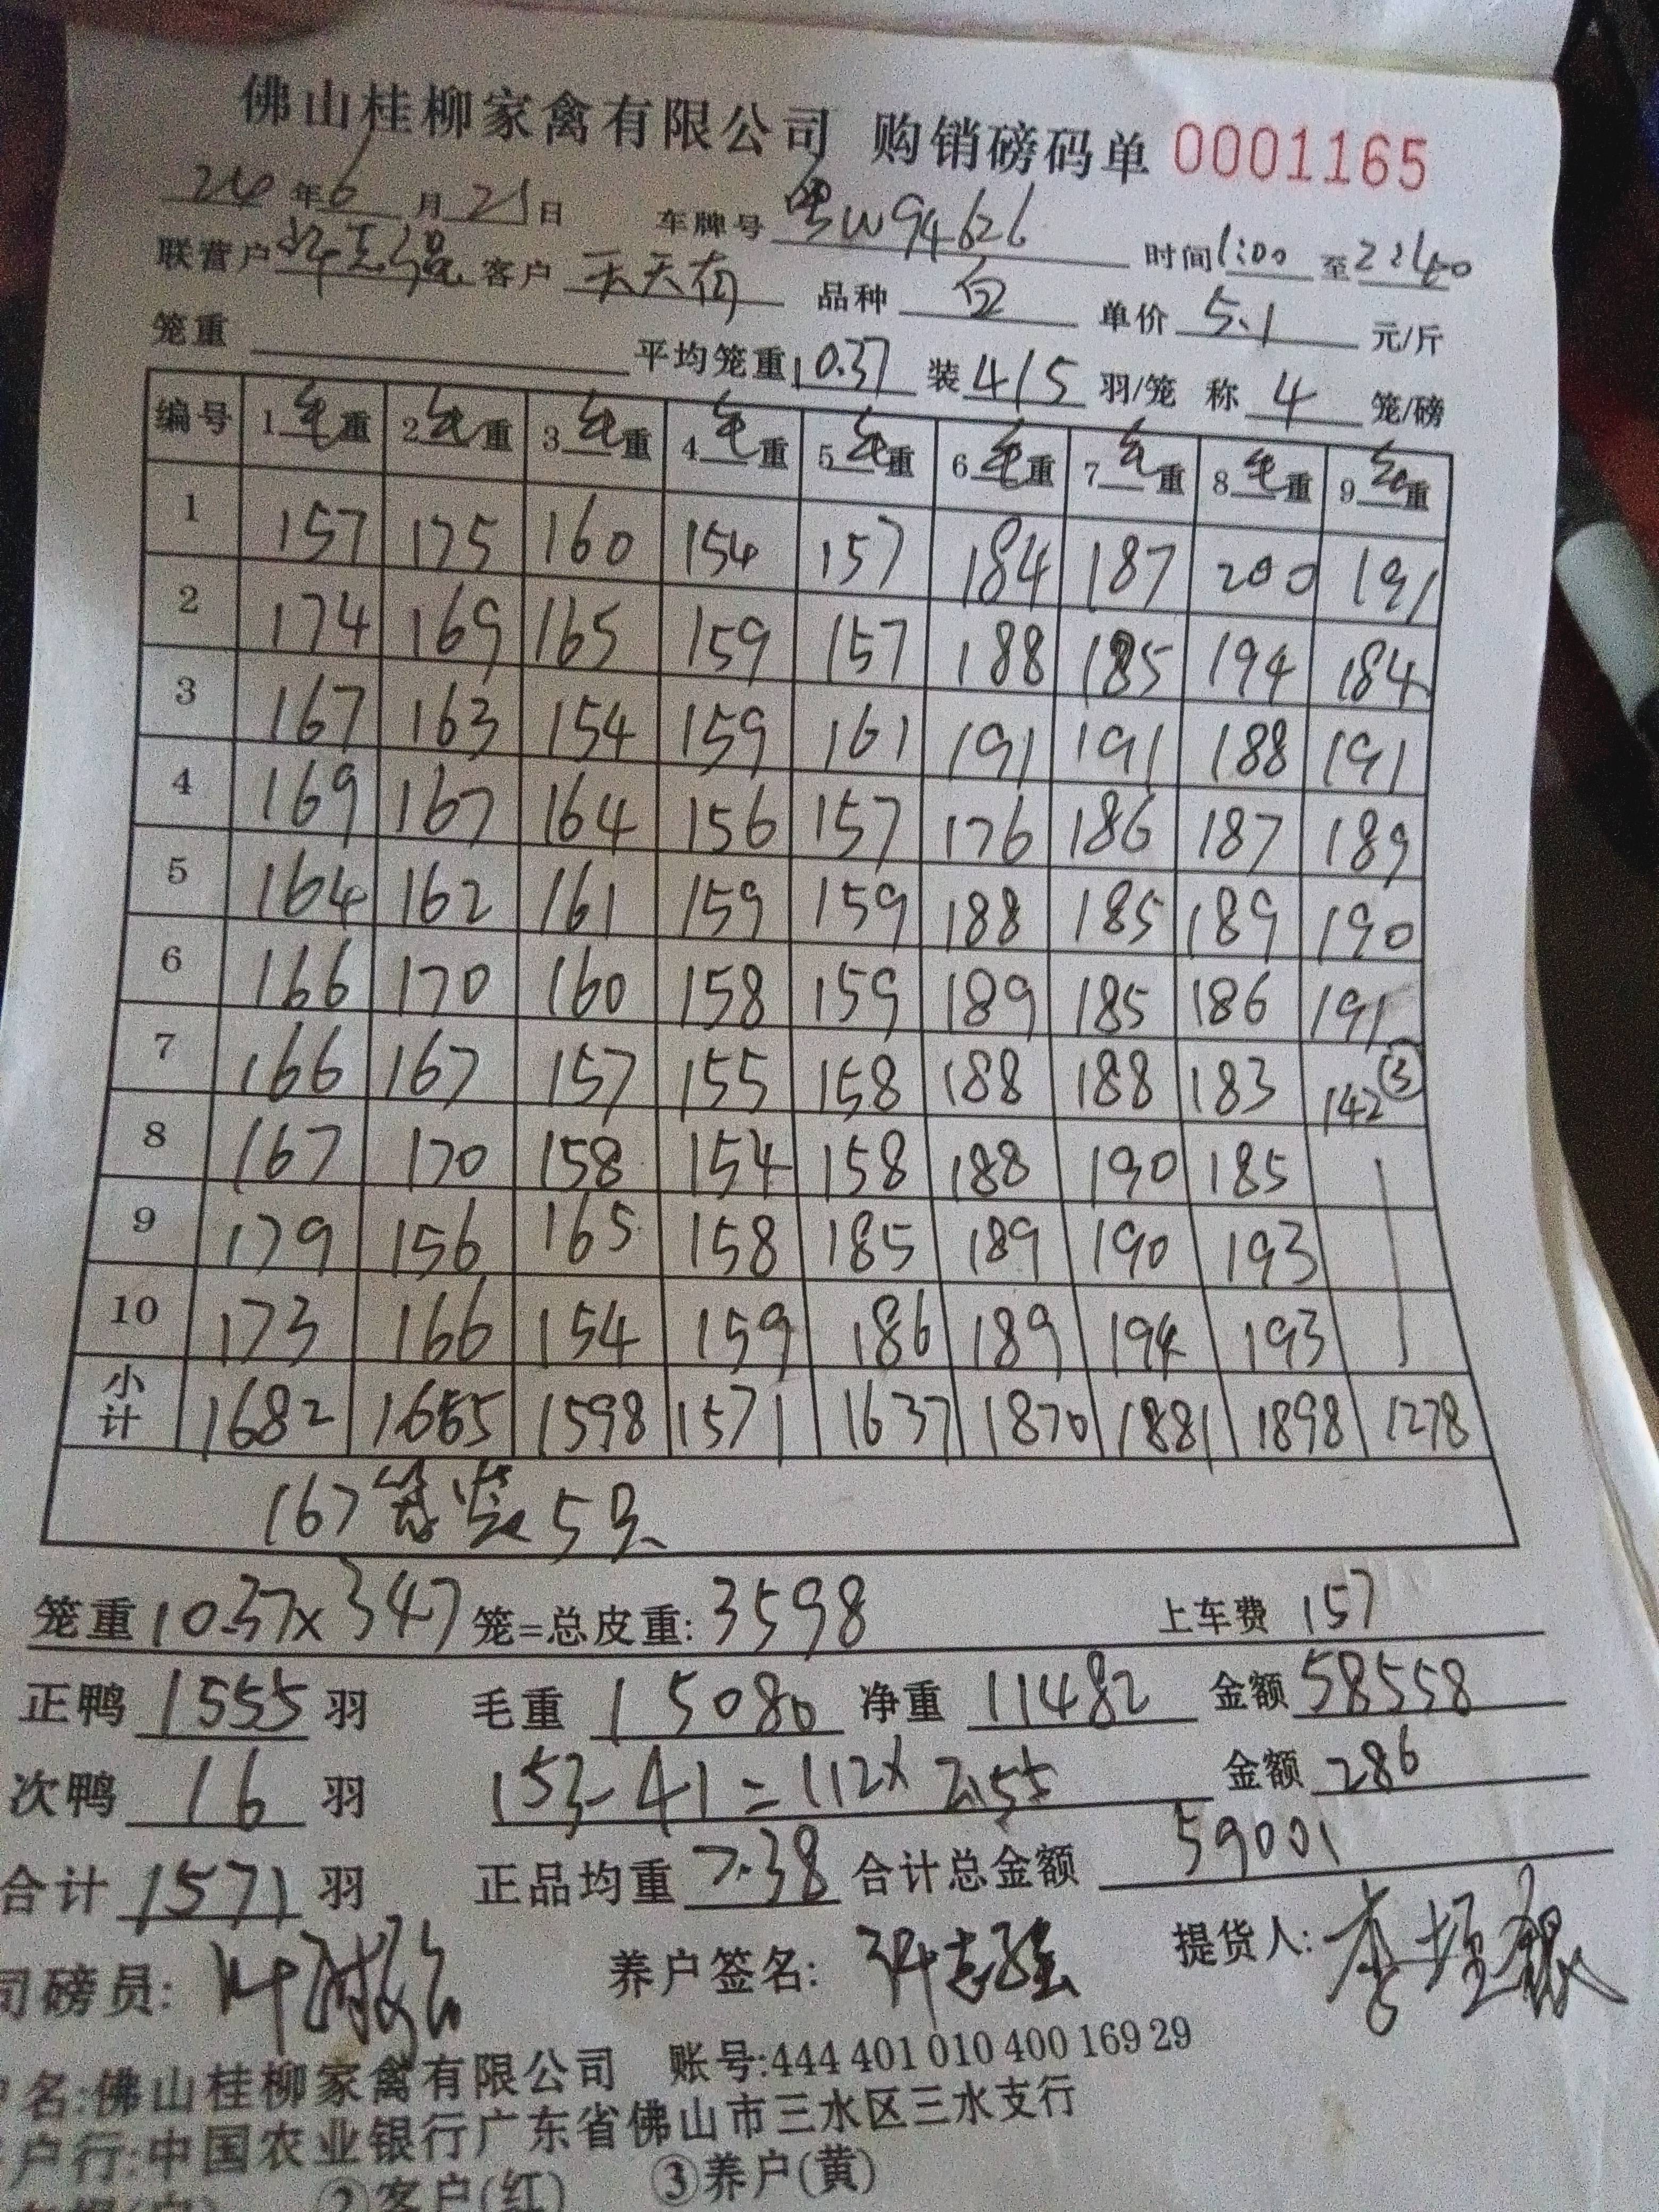 佛山桂柳家禽有限公司 购销磅码单 0001165
24年6月25日 车牌号 粤W94626 时间1:00至2:40
联营户 许志强 客户 天天有 品种 白 单价 5.1 元/斤
笼重 平均笼重10.37 装4/5羽/笼 称4笼/磅
编号 1毛重 2毛重 3毛重 4毛重 5毛重 6毛重 7毛重 8毛重 9毛重
1 157 175 160 154 157 184 187 200 191
2 174 169 165 159 157 188 185 194 184
3 167 163 154 159 161 191 191 188 191
4 169 167 164 156 157 176 186 187 189
5 164 162 161 159 159 188 185 189 190
6 166 170 160 158 159 189 185 186 191
7 166 167 157 155 158 188 188 183 142③
8 167 170 158 154 158 188 190 185
9 179 156 165 158 185 189 190 193
10 173 166 154 159 186 189 194 193
小计 1682 1665 1598 1571 1637 1870 1881 1898 1278
167笼装5只
笼重10.37×347笼=总皮重:3598 上车费 157
正鸭 1555 羽 毛重 15080 净重 11482 金额 58558
次鸭 16 羽 153-41=112×2.55 金额 286
合计 1571 羽 正品均重 7.38 合计总金额 59001
司磅员: 叶 养户签名: 许志强 提货人: 李
名:佛山桂柳家禽有限公司 账号:444 401 010 400 169 29
户行:中国农业银行广东省佛山市三水区三水支行
②客户(红) ③养户(黄)